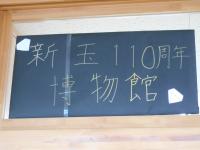 新玉110周年
博物館